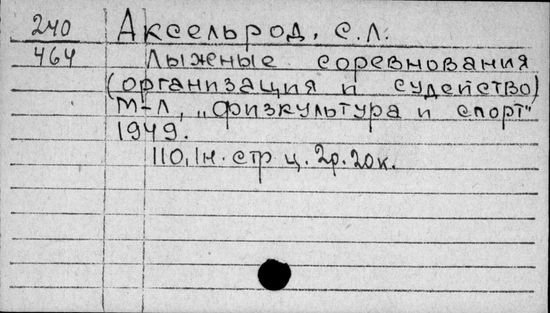 240
464
Аксельрод, С.Л.
Лыжные соревнования
(организация и судейство)
М-Л, „Физкультура и спорт"
1949.
110,1н. стр ц. 2р. 20к.